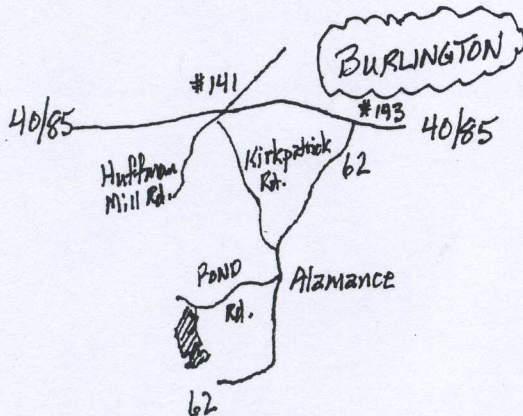 BURLINGTON
#141
#193
40/85
40/85
Huffman
Mill Rd.
Kirkpatrick
Rd.
62
POND
Rd.
Alamance
62